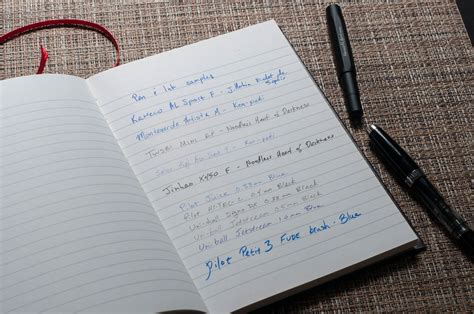 Pen & Ink samples
Kaweco AL Sport F - J. Herbin
Monteverde Artista M - Kon-peki
TWSBI Mini EF - Noodlers Heart of Darkness
Kon-peki
Jinhao X450 F - Noodlers Heart of Darkness
Pilot Juice 0.38mm Blue
Pilot Hi-Tec-C 0.5mm Black
Uni-ball Signo DX 0.38mm Black
Uni-ball Jetstream 0.5mm Black
Uni-ball Jetstream 1.0mm Blue
Pilot Petit 3 Fude brush - Blue